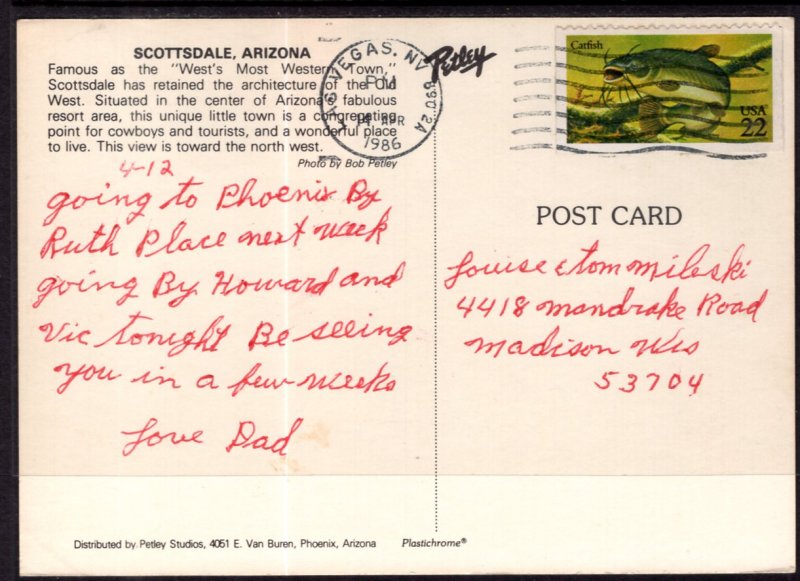 SCOTTSDALE, ARIZONA
Famous as the "West's Most Western Town,"
Scottsdale has retained the architecture of the Old
West. Situated in the center of Arizona's fabulous
resort area, this unique little town is a congregating
point for cowboys and tourists, and a wonderful place
to live. This view is toward the north west.
Photo by Bob Petley
4-12
going to Phoenix By
Ruth Place next week
going By Howard and
Vic tonight Be seeing
you in a few weeks
Love Dad
Distributed by Petley Studios, 4051 E. Van Buren, Phoenix, Arizona Plastichrome®
Petley
VEGAS, NV
PM
APR
1986
Catfish
USA
22
POST CARD
Louise & tom mileski
4418 mandrake Road
madison Wis
53704